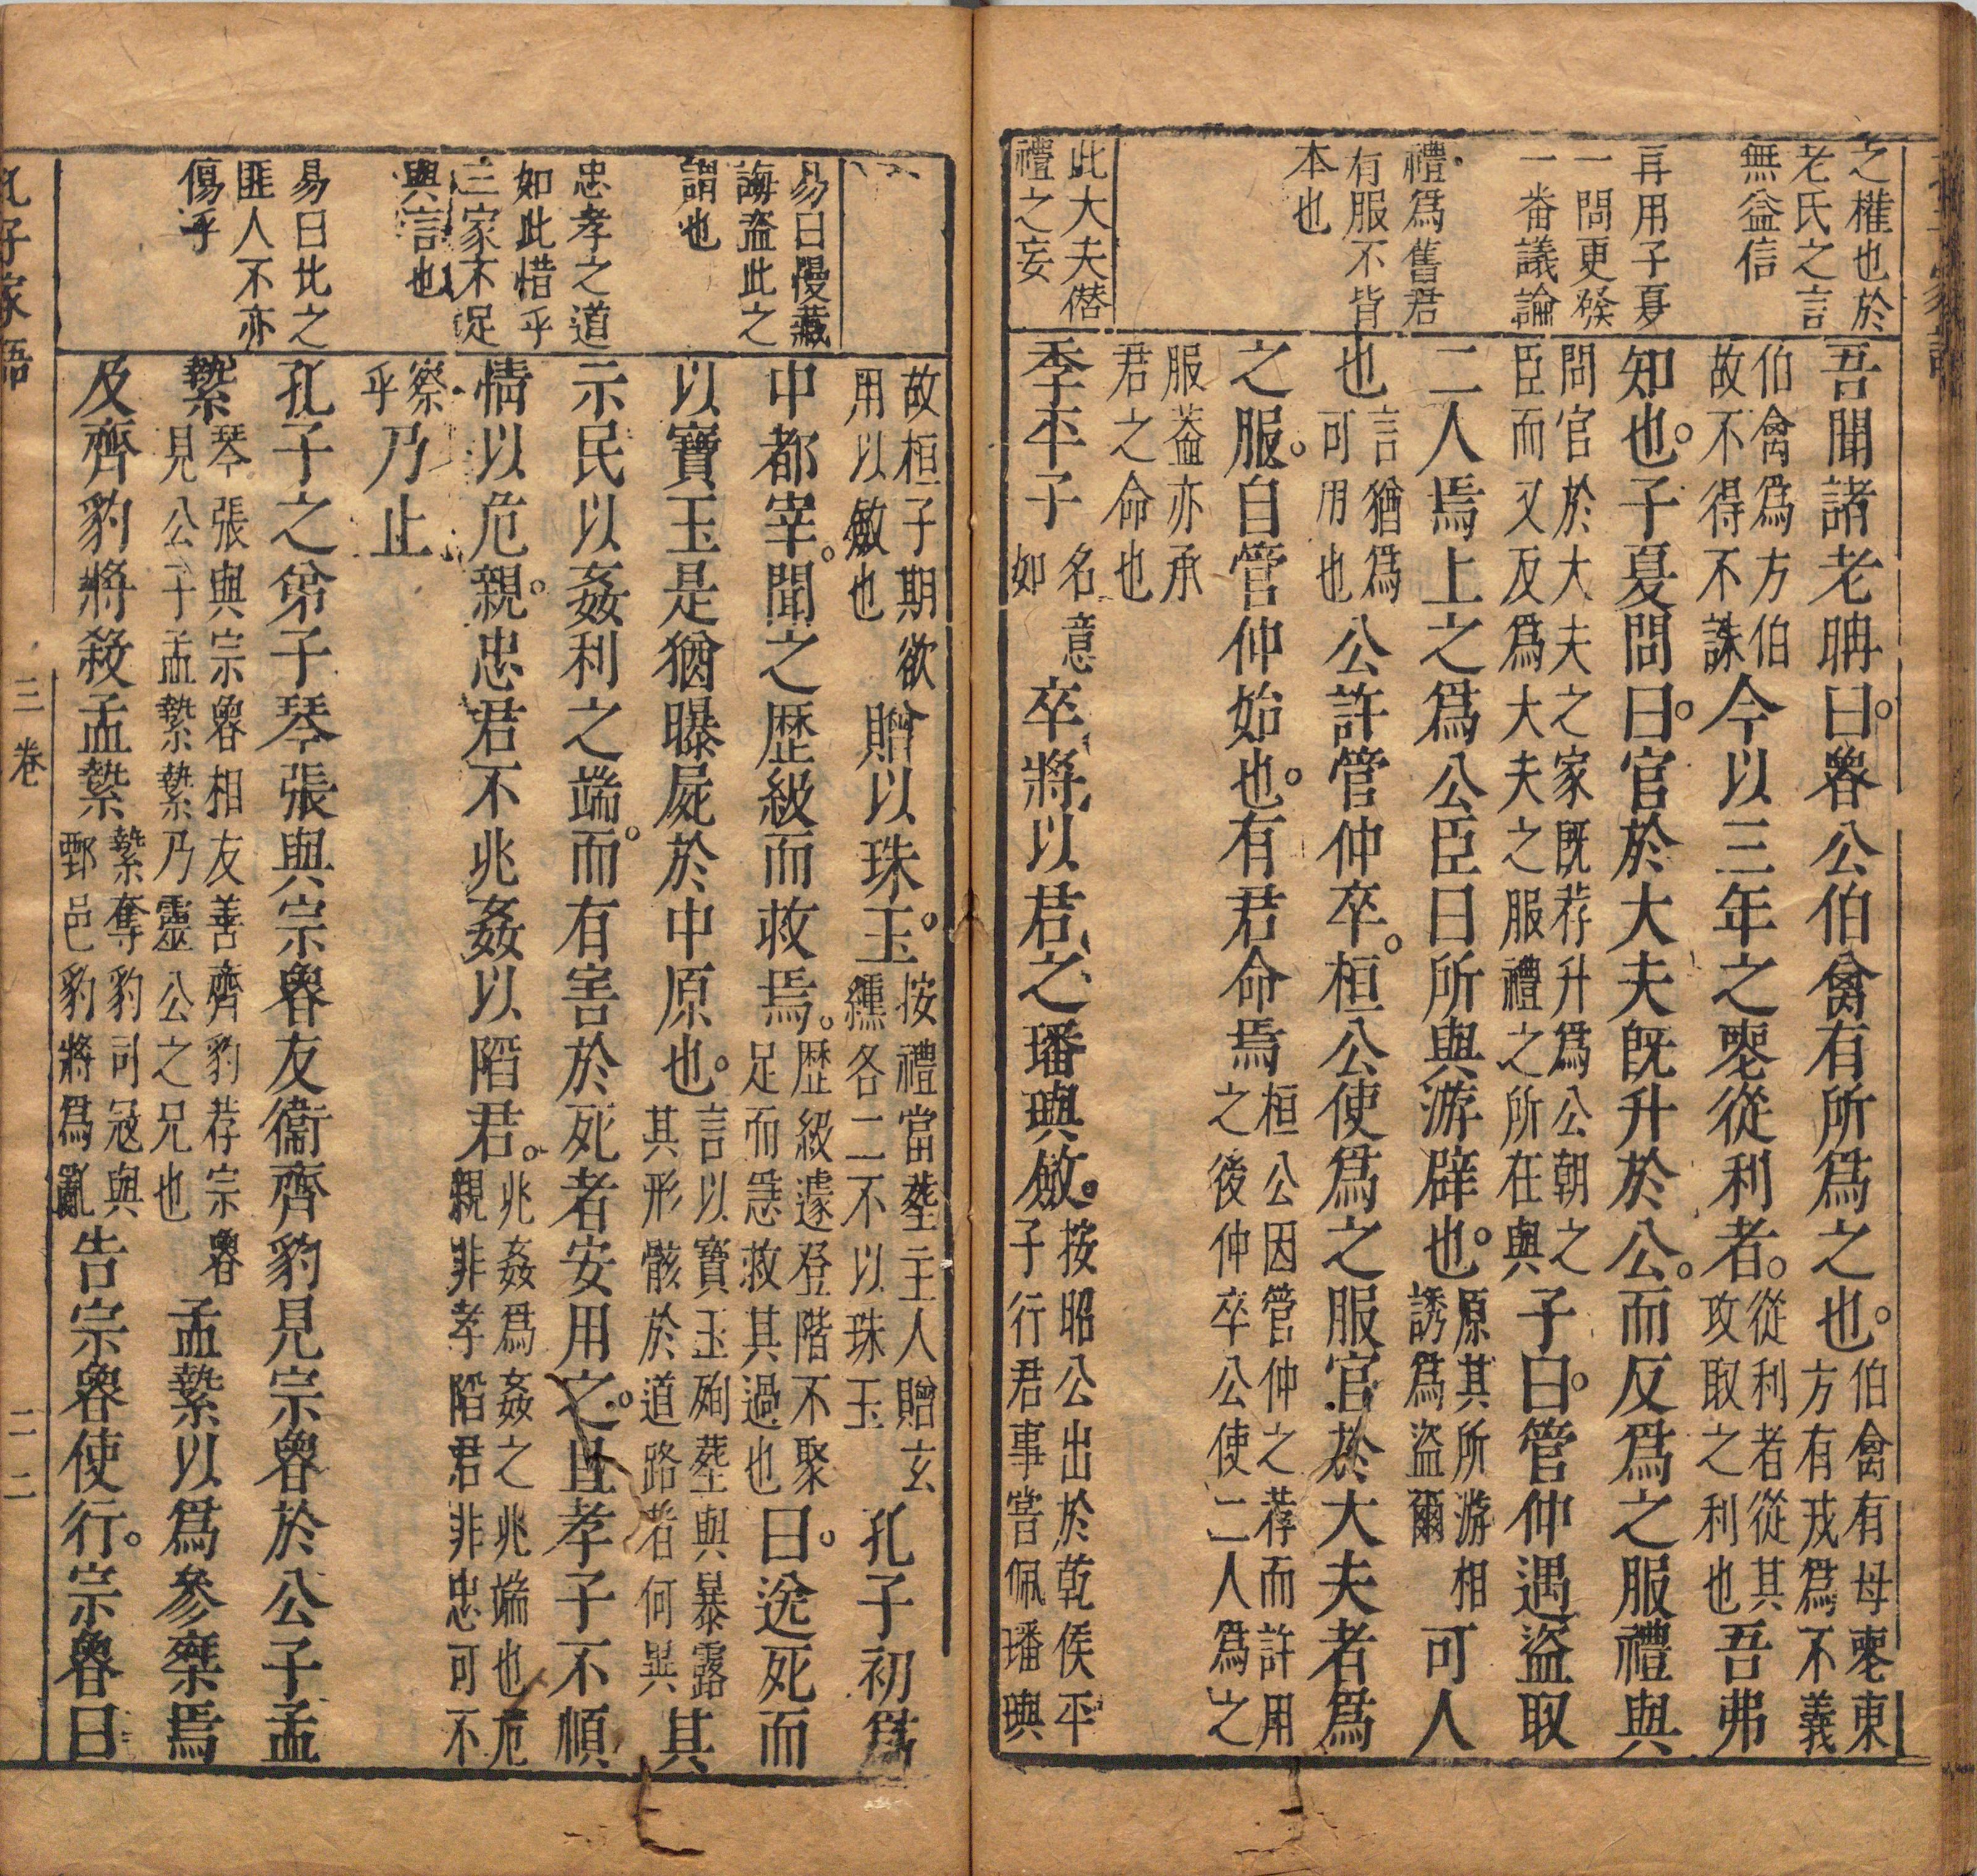 之權也於
老氏之言
無益信
再用子夏
一問更發
一番議論
禮爲舊君
有服不皆
本也
此大夫僭
禮之妄
吾聞諸老聃曰魯公伯禽有所爲之也伯禽有母喪東方有戎爲不義
伯禽爲方伯故不得不誅今以三年之喪從利者從利者從其攻取之利也吾弗
知也子夏問曰官於大夫既升於公而反爲之服禮與
問官於大夫之家既荐升爲公朝之臣而又反爲大夫之服禮之所在與子曰管仲遇盜取
二人焉上之爲公臣曰所與游辟也原其所游相誘爲盜爾可人
也言猶爲可用也公許管仲卒桓公使爲之服官於大夫者爲
之服自管仲始也有君命焉桓公因管仲之荐而許用之後仲卒公使二人爲之
服葢亦承君之命也
季平子名意如卒將以君之璠璵斂按昭公出於乾侯平子行君事嘗佩璠璵
易曰慢藏
誨盜此之
謂也
忠孝之道
如此惜乎
三家不足
與言也
易曰比之
匪人不亦
傷乎
故桓子期欲用以斂也贈以珠玉按禮當塟主人贈玄纁各二不以珠玉孔子初爲
中都宰聞之歷級而救焉歷級遽登階不聚足而急救其過也曰送死而
以寶玉是猶曝屍於中原也言以寶玉殉塟與暴露其形骸於道路者何異其
示民以姦利之端而有害於死者安用之且孝子不順
情以危親忠君不兆姦以陷君兆姦爲姦之兆端也危親非孝陷君非忠可不
察乎乃止
孔子之弟子琴張與宗魯友衞齊豹見宗魯於公子孟
縶琴張與宗魯相友善齊豹荐宗魯見公子孟縶縶乃靈公之兄也孟縶以爲參乗焉
及齊豹將殺孟縶縶奪豹司寇與鄄邑豹將爲亂告宗魯使行宗魯曰
孔子家語
三卷
二二